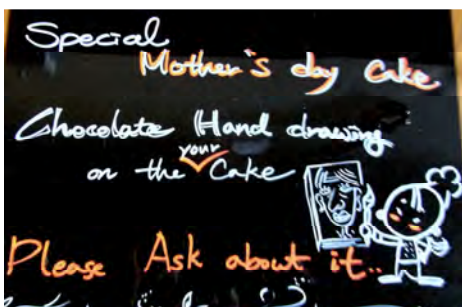 Special
Mother's day Cake
Chocolate Hand drawing
on the your Cake
Please Ask about it..